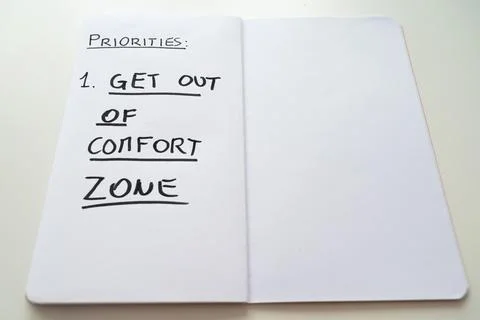 PRIORITIES:
1. GET OUT
OF
COMFORT
ZONE